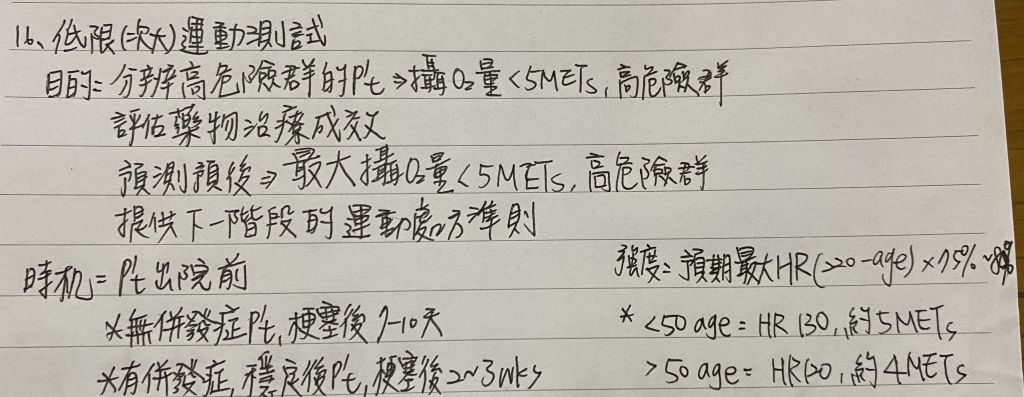 16、低限(次大)運動測試
目的=分辨高危險群的P't⇒攝O₂量<5METs,高危險群
評估藥物治療成效
預測預後⇒最大攝O₂量<5METs,高危險群
提供下一階段的運動處方準則
時机=P't出院前
強度=預期最大HR(220-age)×75%~80%
*無併發症P't,梗塞後7-10天
*<50age=HR130,約5METs
*有併發症,穩定後P't,梗塞後2~3wks
>50age=HR120,約4METs